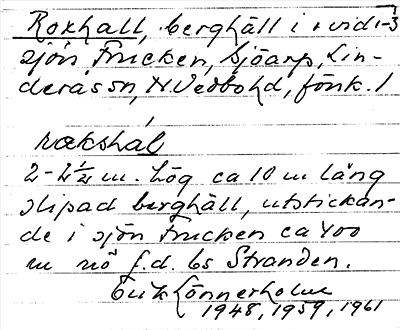 Roxhall, berghäll i o vid 1-3
sjön Frucken, Sjöarp, Lin-
derås sn, N. Vedbo hd, Jönk. l
rɷkshal
2-2½ m. hög ca 10 m lång
slipad berghäll, utstickan-
de i sjön Frucken ca 400
m nö f.d. bs Stranden.
Erik Lönnerholm
1948, 1959, 1961